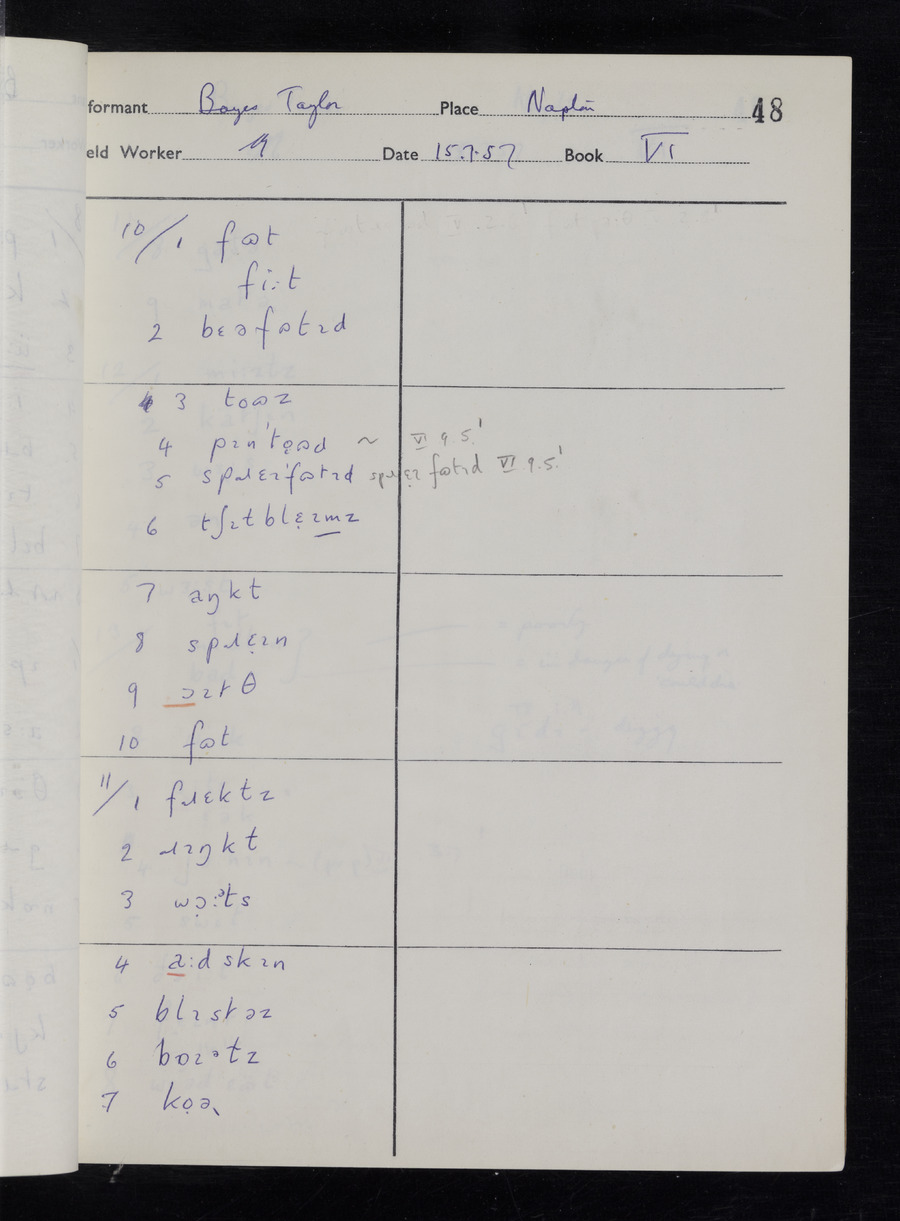 formant Bayes Taylor Place Napton 48
eld Worker Date 15.7.57 Book VI
10/1 fɷt
fi:t
2 bɛəfɷtɪd
3 toɷz
4 pɪn'tọɷd ~ VI 9.5.'
5 splɹɛɪ'fɷtɪd fɷtɪd VI 9.5.'
6 tʃɪtblɛ̣ɪmz
7 aŋkt
8 spɹɛ̣ɪn
9 ɔɪtθ
10 fɷt
11/1 fɹɛktz
2 ɹɪŋkt
3 wɔ̣:ᵊts
4 a:dskɪn
5 blɪstəz
6 bɒɪᵊtz
7 kọə